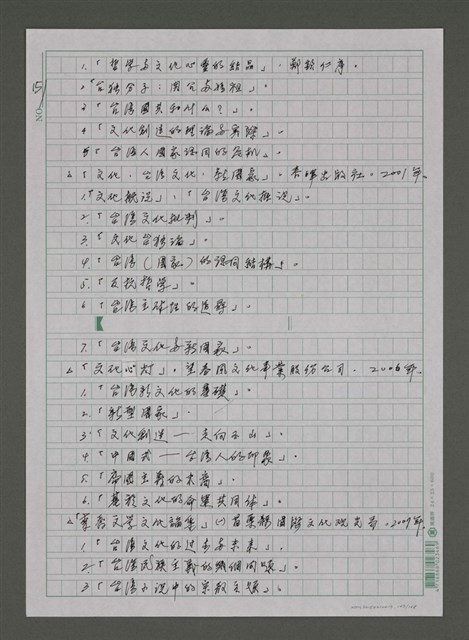 1.「哲學與文化心靈的結品」,鄭欽仁序。
2「台獨分子:閩台
3「台灣國共和什么?」。
4「文化創造的理論與實際」。
5「台灣人國家認同的危機」。
△「文化、台灣文化、新國家」。春暉出版社。2001年。
1.「文化概說」、「台灣文化概說」。
2.「台灣文化批判」。
3.「文化台獨論」。
4.「台灣(國家)的認同結構」。
5.「反抗哲學」。
6「台灣主體性的追尋」
7.「台灣文化與新國家」。
△「文化心灯」。望春風文化事業股份公司. 2006年。
1.「台灣新文化的基礎」
2.「新型國家」。
3.「文化創造——走向玉山」。
4.「中國式——台灣人的印象」。
5.「帝國主義的末裔」。
6.「
文化的命運共同体」。
文學文化論集」(一)苗栗縣國際文化觀光局.2009年.
1.「台灣文化的過去與未來」.
2.「台灣民族主義的幾個問題」。
3「台灣小說中的宗教